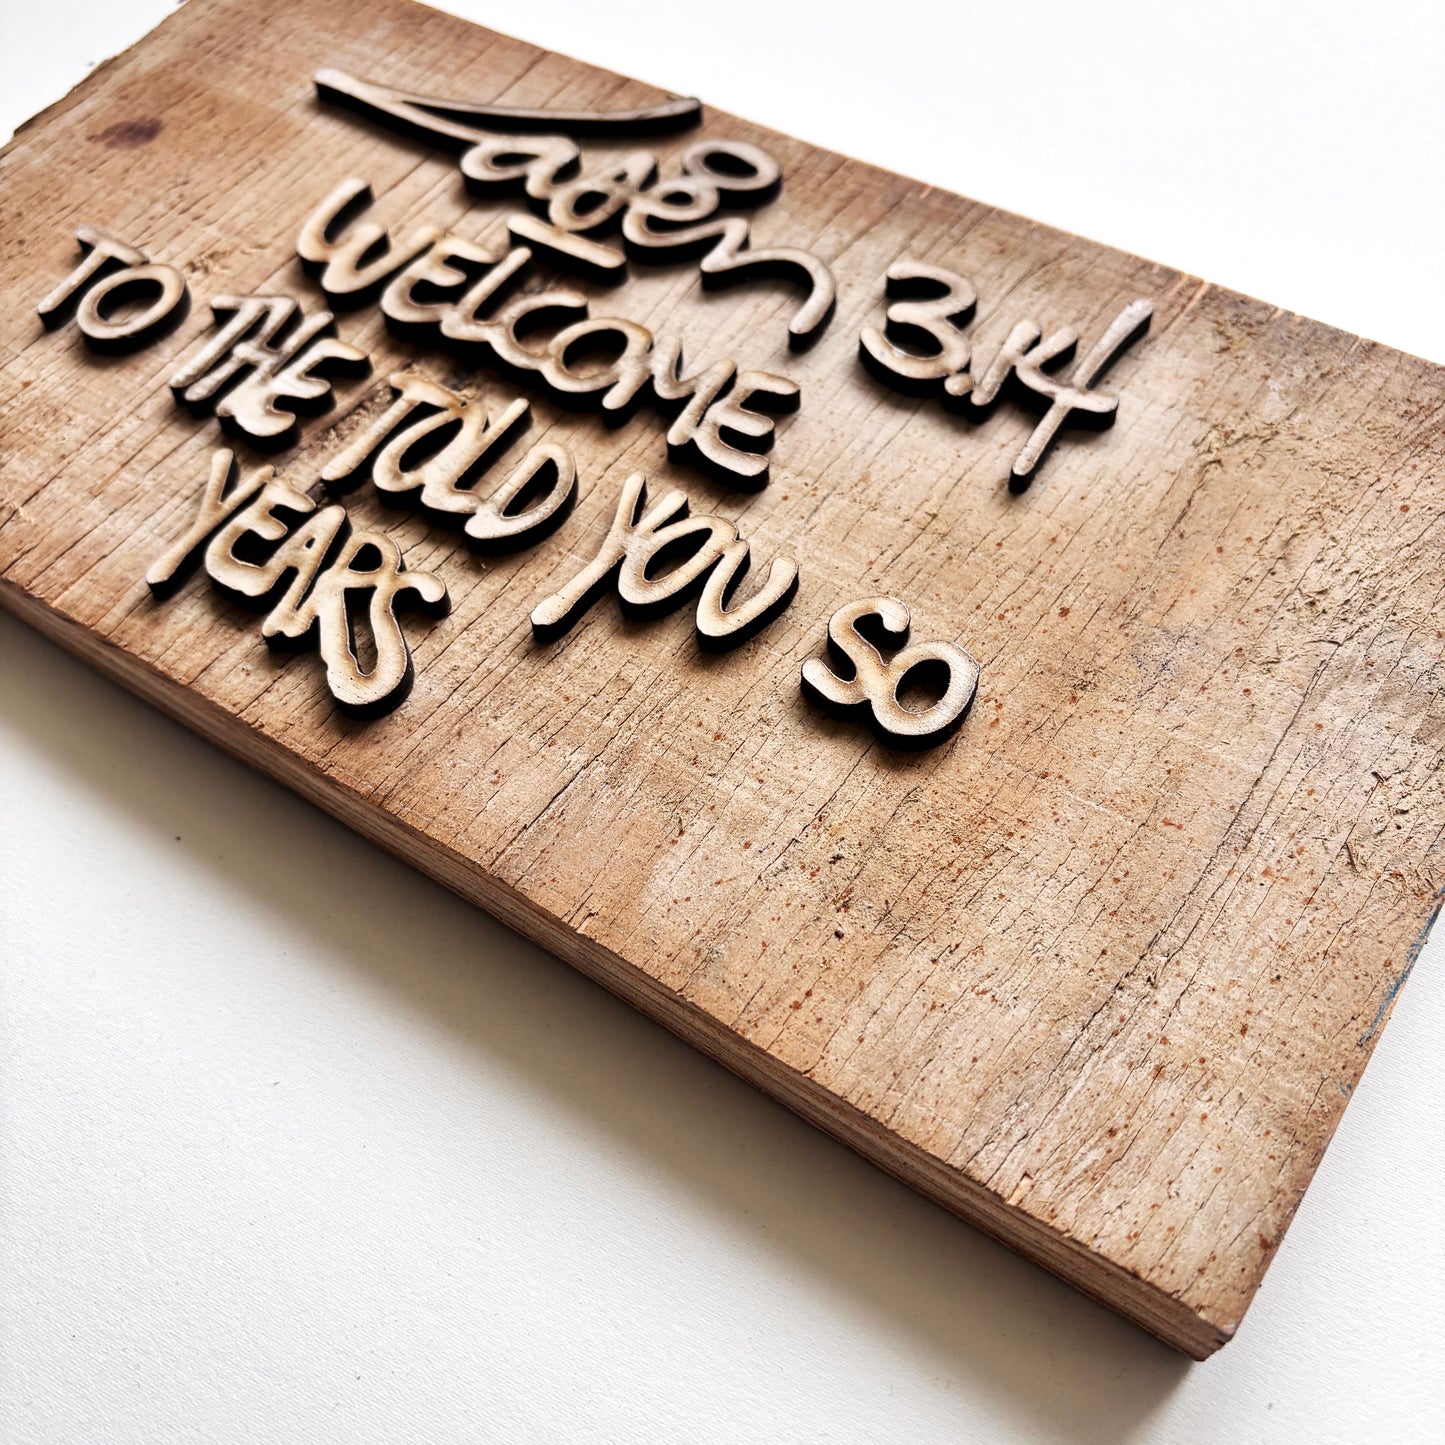 Laser 3.14
WELCOME
TO THE TOLD YOU SO
YEARS